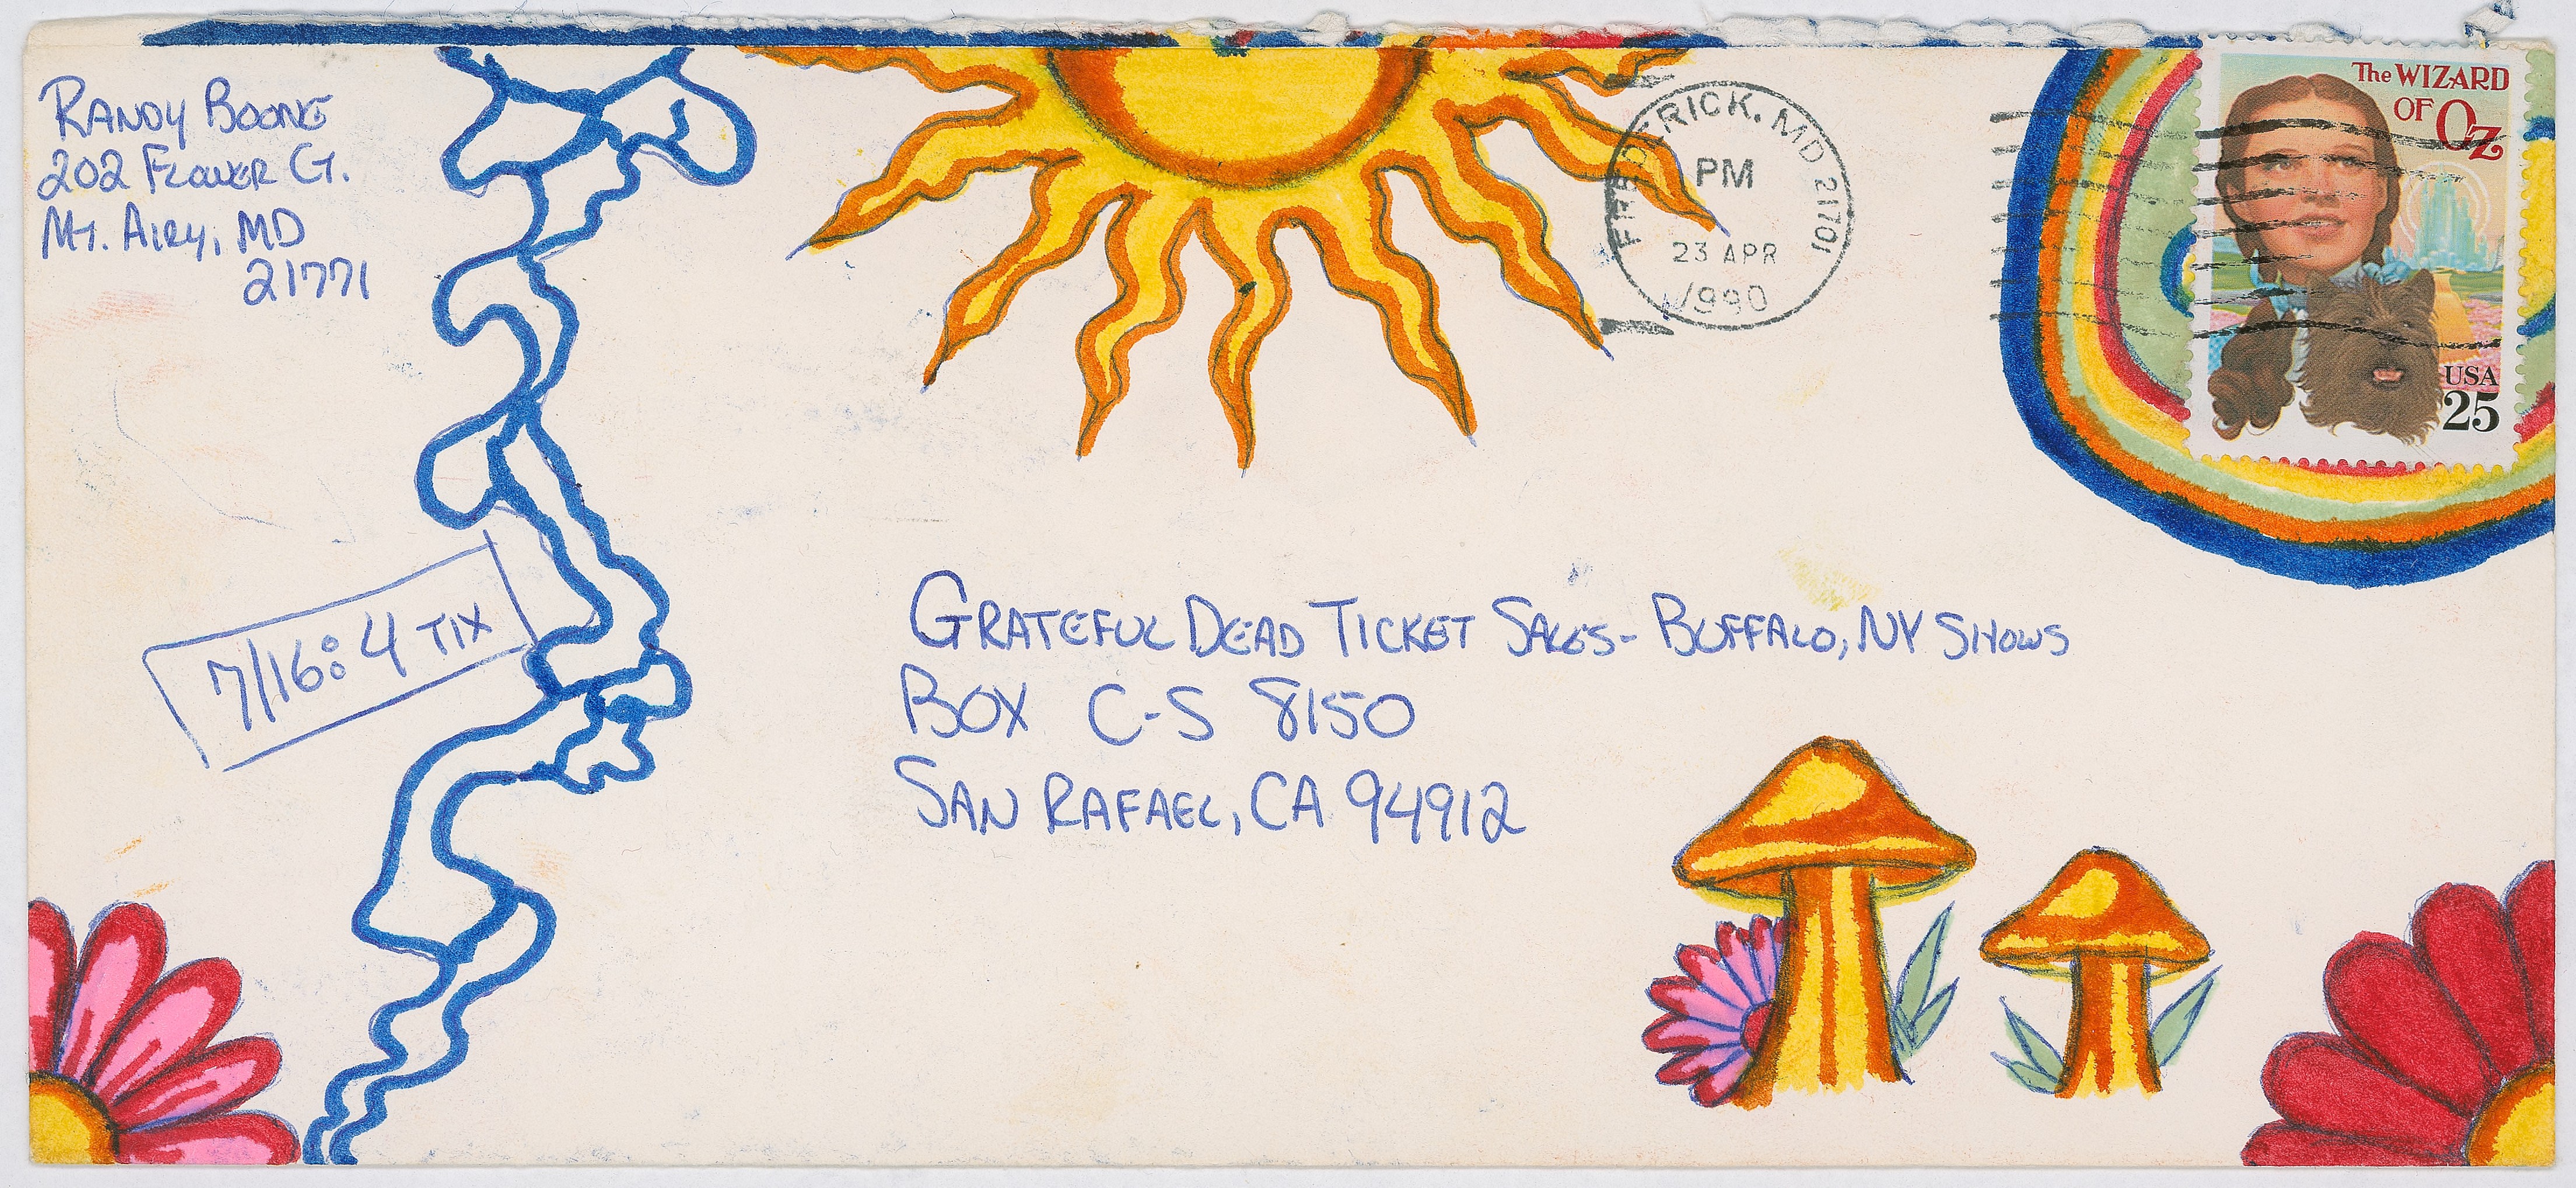 RANDY BOONE
202 FLOWER CT.
MT. AIRY, MD
21771
FREDERICK, MD 21701
PM
23 APR
1990
The WIZARD
OF OZ
USA
25
7/16: 4 TIX
GRATEFUL DEAD TICKET SALES- BUFFALO, NY SHOWS
BOX C-S 8150
SAN RAFAEL, CA 94912